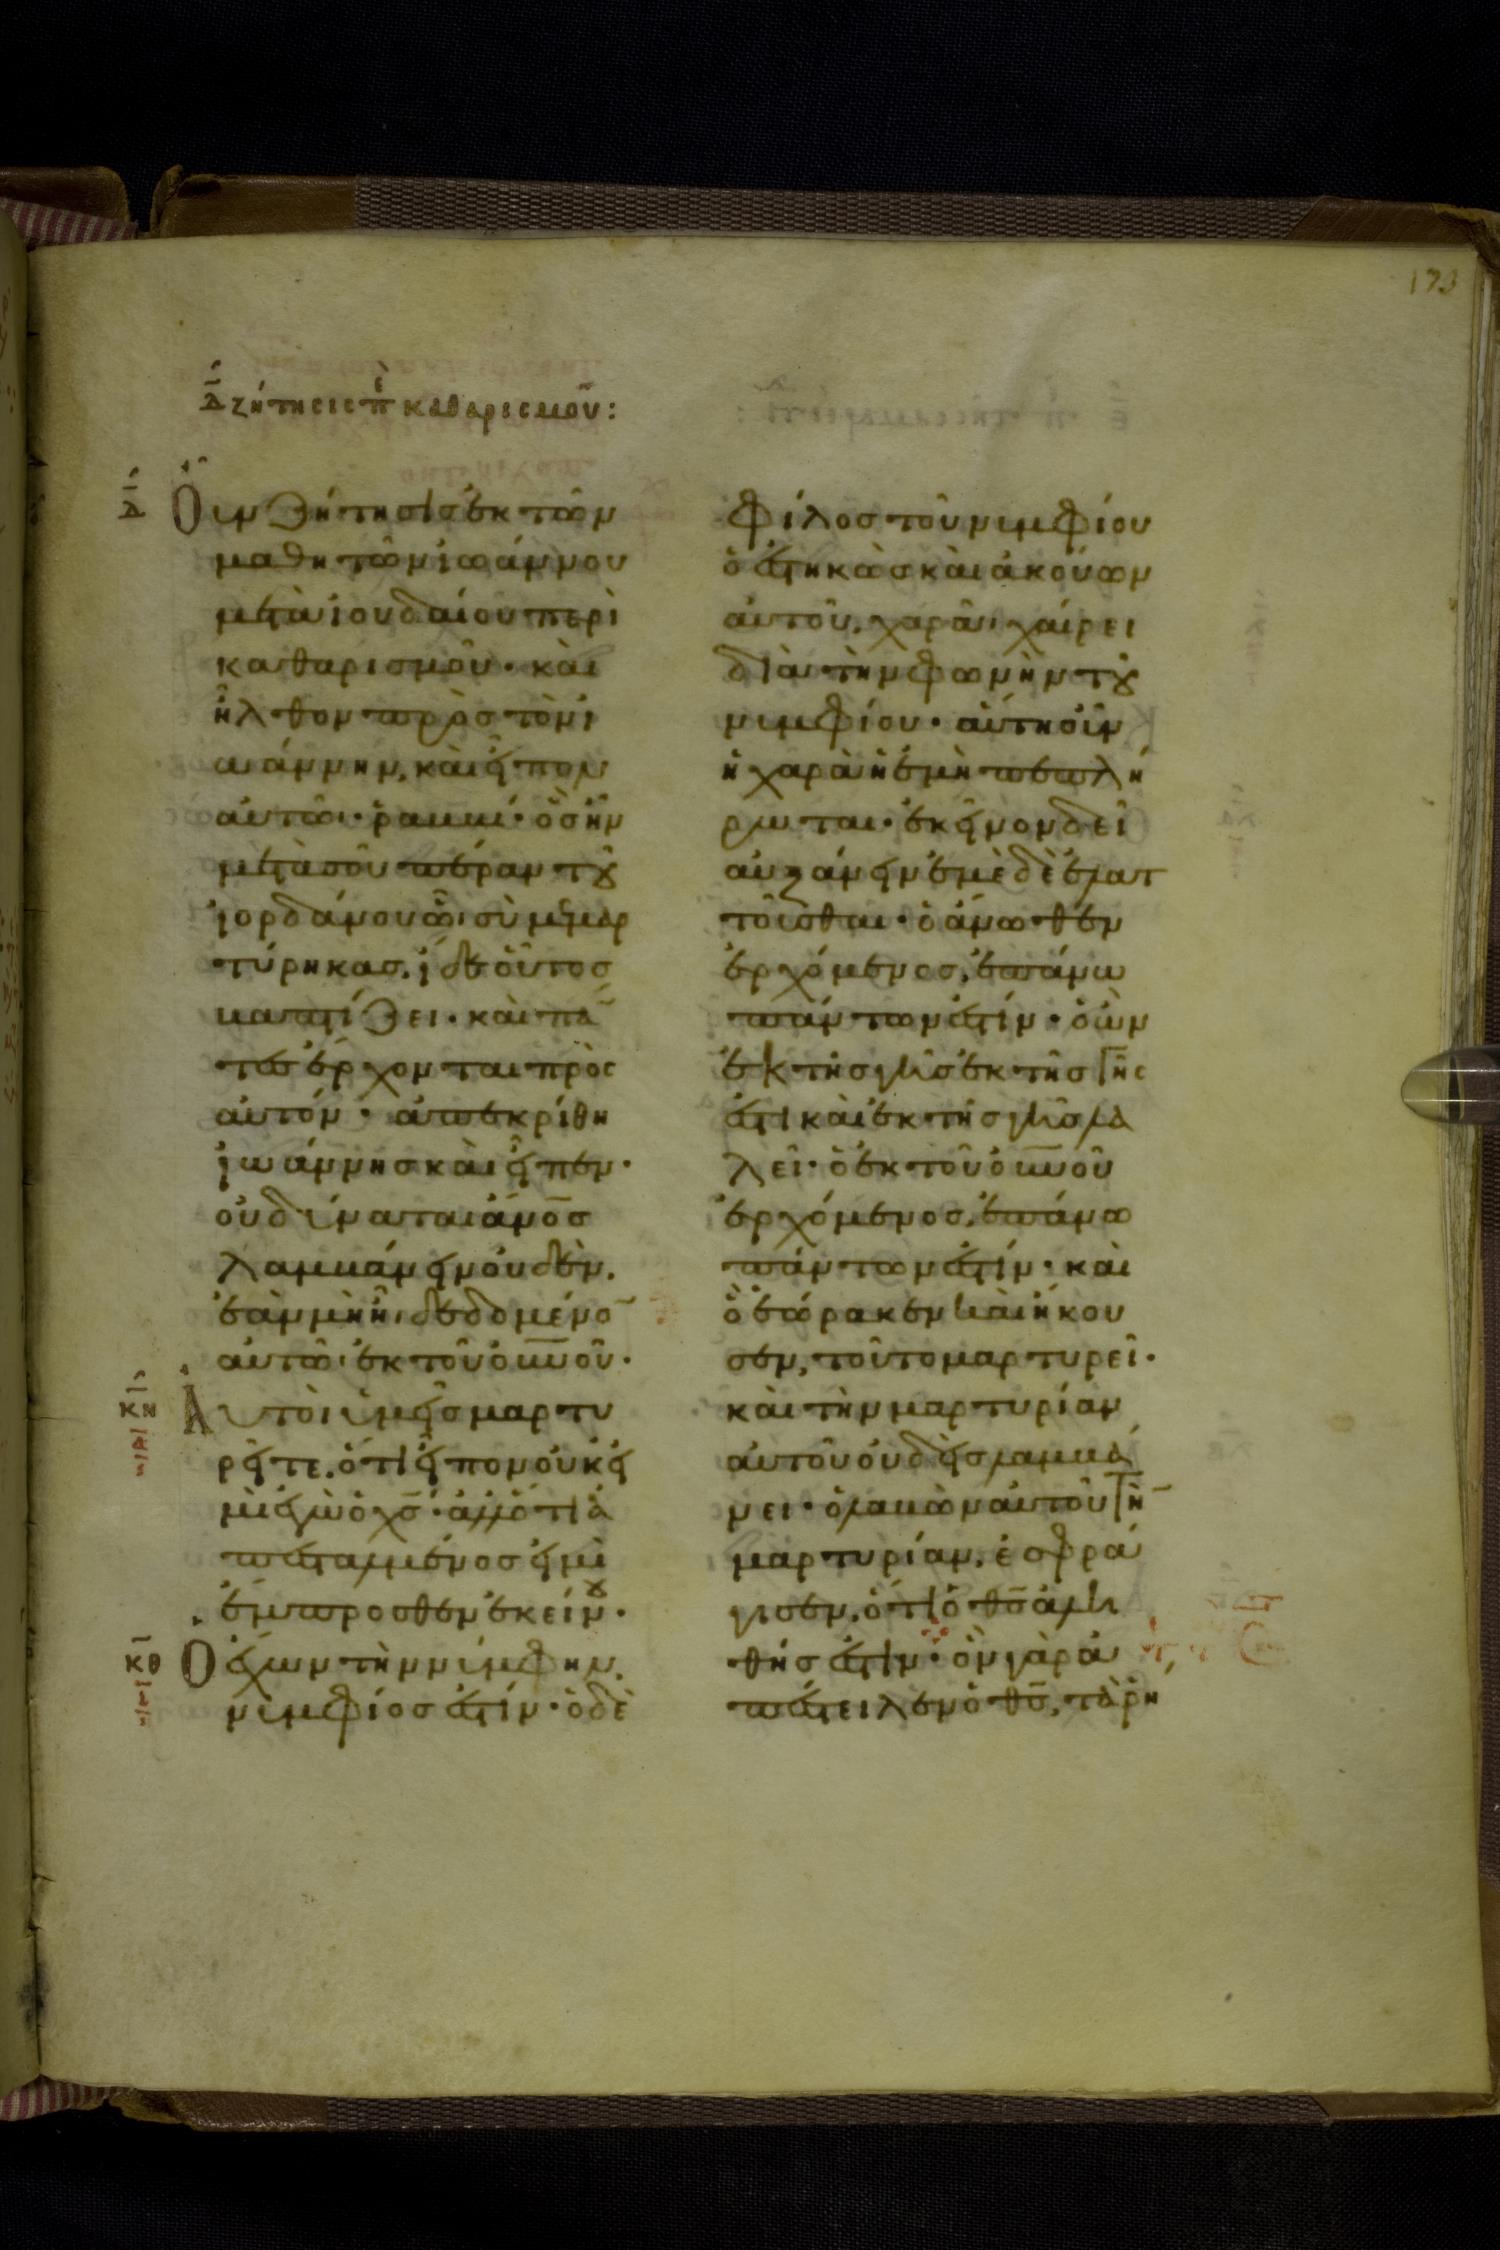 173
Δ ζήτησις πε καθαρισμοῦ:
Δ Οιν ζήτησισ ἐκ τῶν
μαθητῶν ἰωάννου
μετὰ ἰουδαίου περὶ
καθαρισμοῦ· καὶ
ἦλθον πρὸσ τὸν ἰ
ωάννην, καὶ εἶπον
αὐτῶ· ῥαββί· ὃσ ἦν
μετὰ σοῦ πέραν τοῦ
ἰορδάνου ὧι σὺ μεμαρ
τύρηκασ, ἴδε οὗτοσ
βαπτίζει· καὶ πᾶ
τεσ ἔρχονται πρὸς
αὐτόν· ἀπεκρίθη
ἰωάννησ καὶ εἶπεν·
οὐ δύναται ἄνοσ
λαμβάνειν οὐδὲν,
ἐὰν μὴ ῆι δεδομένο
αὐτῶι ἐκ τοῦ οὐνοῦ·
ΚΗ Αὐτοὶ ὑμεῖσ μαρτυ
ρεῖτε, ὅτι εἶπον οὐκ εἰ
μὶ ἐγὼ ὁ χσ· ἀλλ ὅτι ἀ
πεσταλμένοσ εἰμὶ
ἔμπροσθεν ἐκείνου·
ΚΘ Ὁ ἔχων τὴν νύμφην,
νυμφίοσ ἐστίν· ὁ δὲ
φίλοσ τοῦ νυμφίου
ὁ ἑστηκὼσ καὶ ἀκούων
αὐτοῦ, χαρᾶι χαίρει
διὰ τὴν φωνὴν τοῦ
νυμφίου· αὕτη οὖν
ἡ χαρὰ ἡ ἐμὴ πεπλή
ρωται· ἐκεῖνον δεῖ
αὐξάνειν ἐμὲ δὲ ἐλατ
τοῦσθαι· ὁ ἄνωθεν
ἐρχόμενοσ, ἐπάνω
πάντων ἐστίν· ὁ ὢν
ἐκ τῆσ γῆσ ἐκ τῆσ γῆς
ἐστι καὶ ἐκ τῆσ γῆσ λα
λεῖ· ὁ ἐκ τοῦ οὐνοῦ
ἐρχόμενοσ, ἐπάνω
πάντων ἐστίν· καὶ
ὃ ἑώρακεν καὶ ἤκου
σεν, τοῦτο μαρτυρεῖ·
καὶ τὴν μαρτυρίαν
αὐτοῦ οὐδεὶσ λαμβά
νει· ὁ λαβὼν αὐτοῦ τὴ
μαρτυρίαν, ἐσφρά
γισεν, ὅτι ὁ θσ ἀλη
θήσ ἐστιν· ὃν γὰρ ἀ
πέστειλεν ὁ θσ, τὰ ῥή